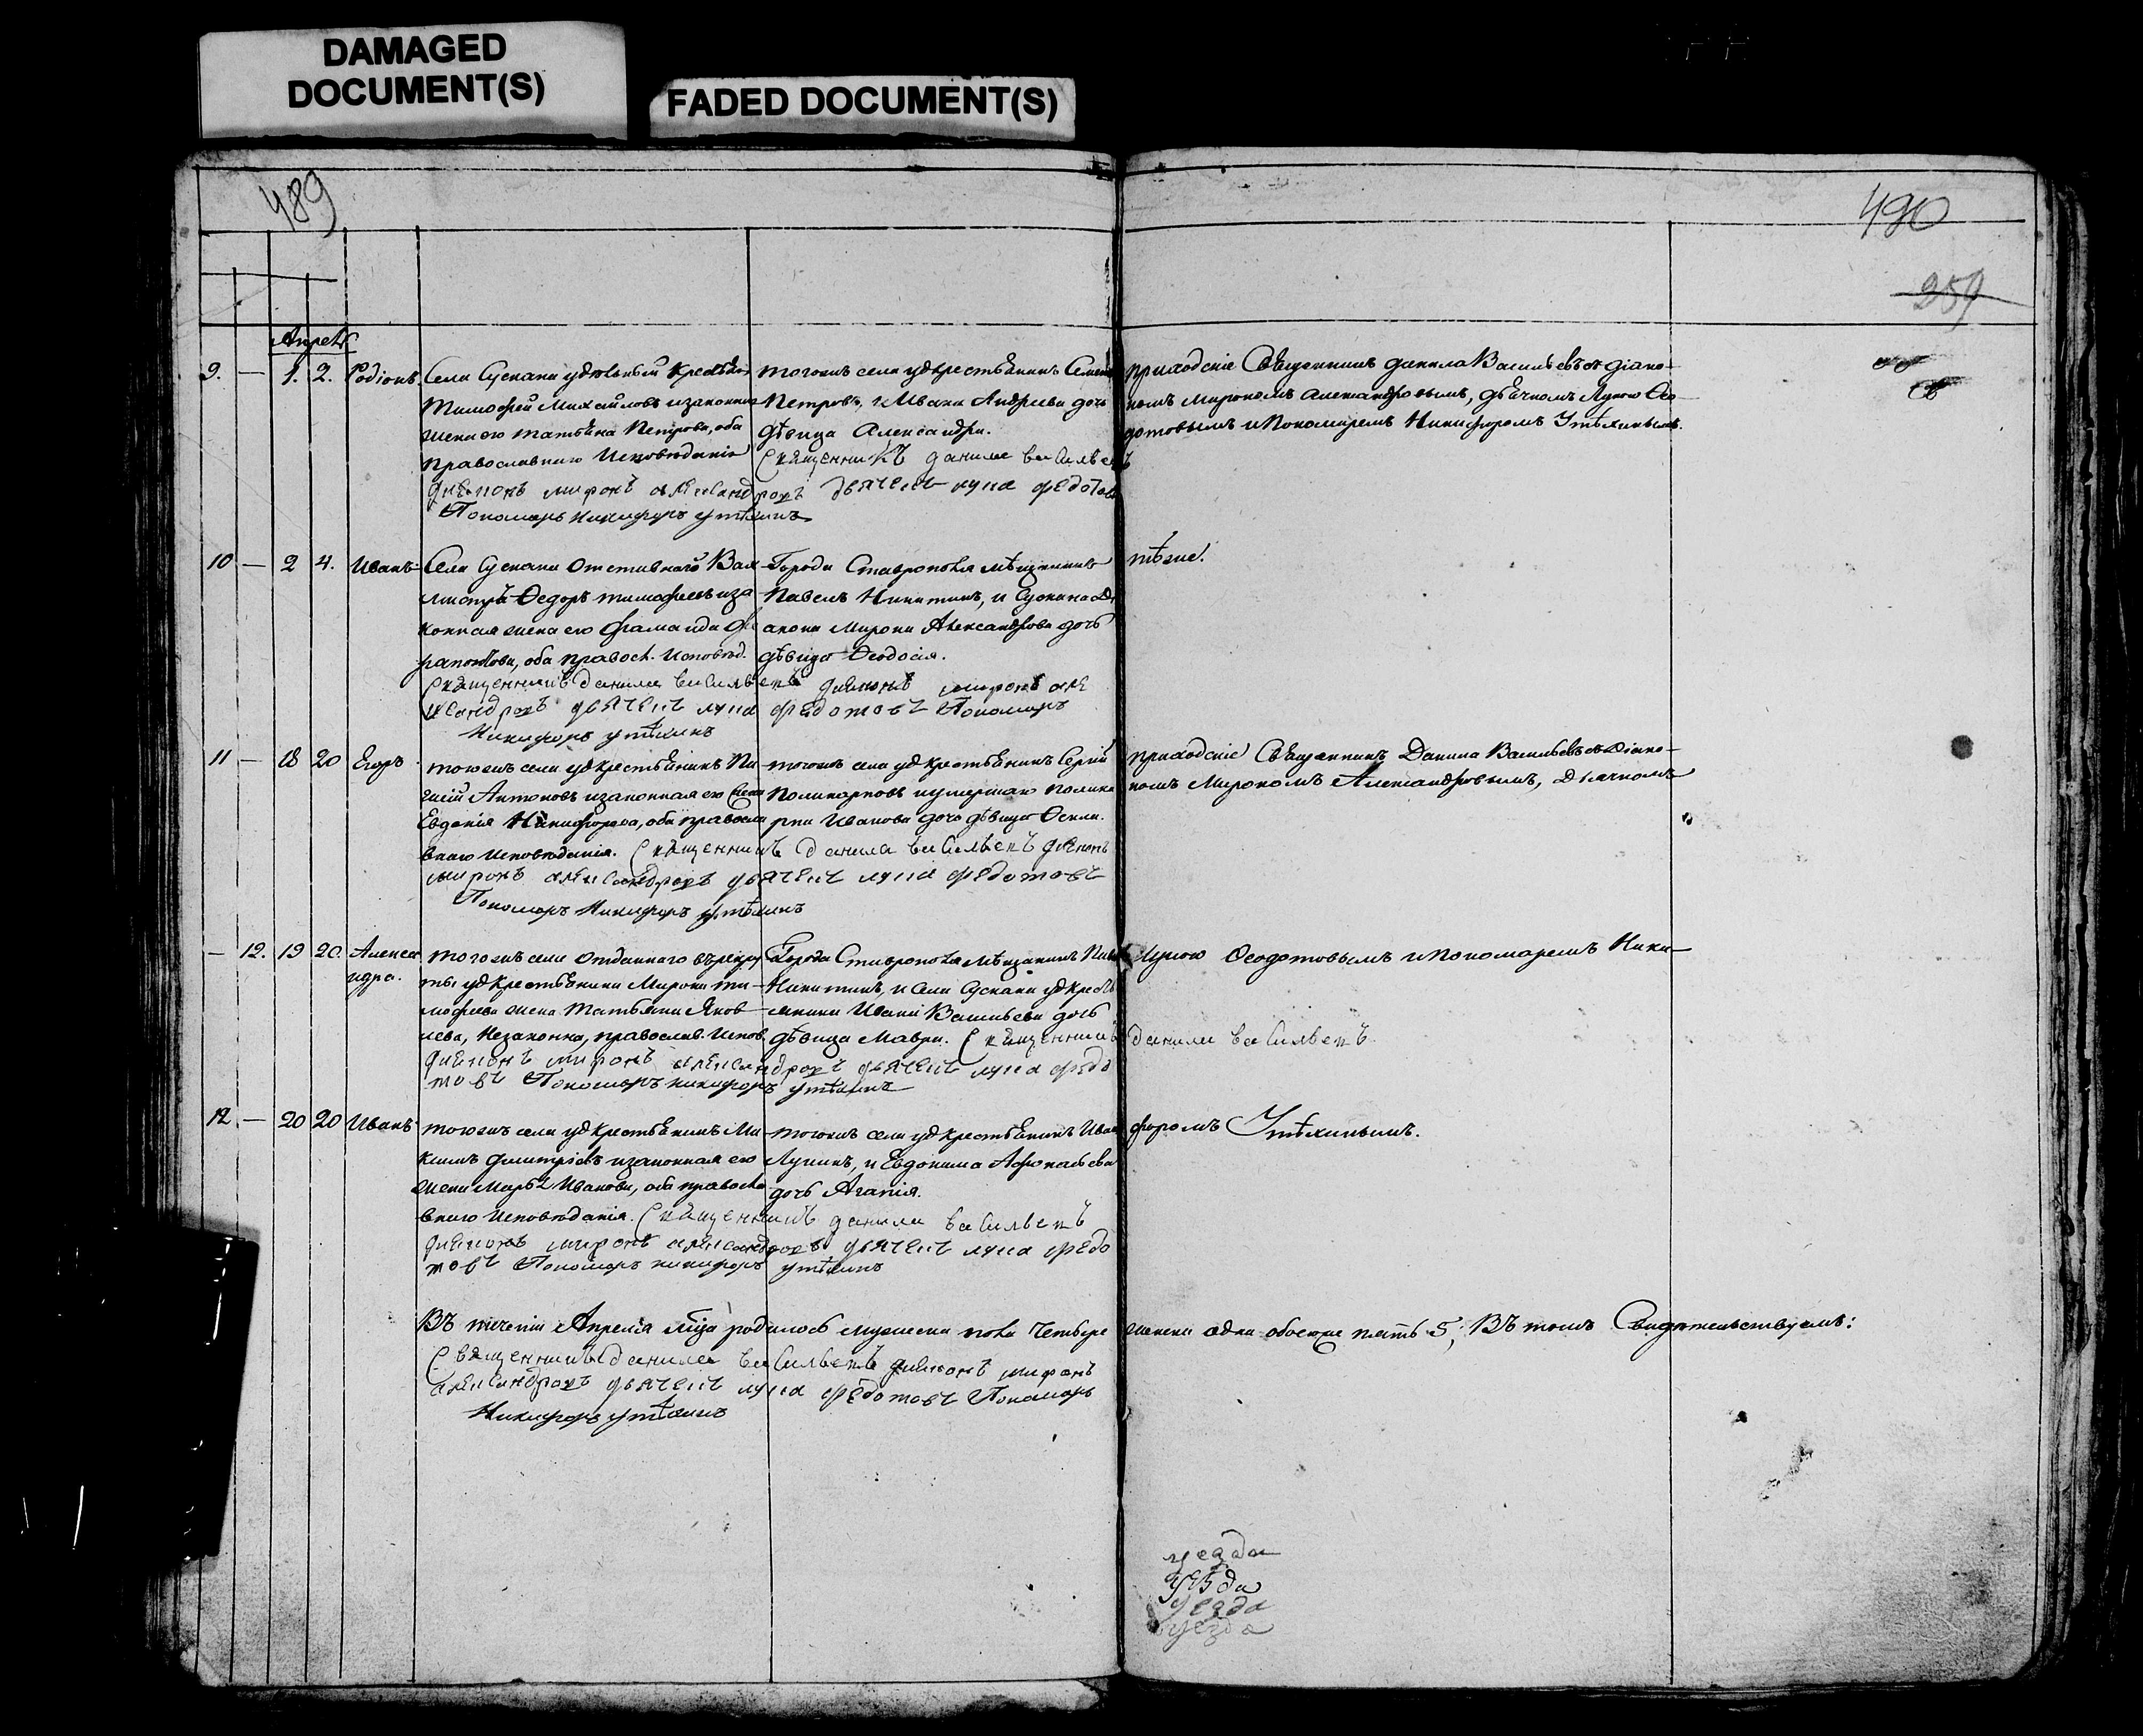 DAMAGED
DOCUMENT(S)
FADED DOCUMENT(S)
489
490
259
Апрель
9. — 1. 2. Родіонъ.
Села Сускана удѣльный крестьянинъ
Тимофей Михайловъ и законная
жена его Татьяна Петрова, оба
православнаго исповѣданія
тогожъ села уд крестьянинъ Семенъ
Петровъ, и Ивана Андреева дочь
дѣвица Александра.
Священникъ данила васильевъ
диаконъ миронъ александровъ дьячекъ лука федотовъ
Пономарь Никифоръ утѣхинъ
приходскіе Священникъ данила Васильевъ съ діако-
номъ Мирономъ александровымъ, дьячкомъ Лукою Ѳео-
дотовымъ и Пономаремъ Никифоромъ Утѣхинымъ.
10 — 2 4. Иванъ
Села Сускана отставнаго
Ѳедоръ тимофеевъ и за
конная жена его
оба правосл. исповѣд.
Города Ставрополя мѣщанинъ
Павелъ Никитинъ, и Сускана Ді
акона Мирона Александрова дочь
дѣвица Ѳеодосія.
Священникъ данила васильевъ диаконъ миронъ але
ксандровъ дьячекъ лука федотовъ Пономарь
Никифоръ утѣхинъ
тѣже.
11 — 18 20 Егоръ
тогожъ села уд крестьянинъ
Антоновъ и законная его жена
Евдокія Никифорова, оба правосла
внаго исповѣданія.
тогожъ села уд крестьянинъ Сергій
Поликарповъ и умершаго полика
рпа Иванова дочь дѣвица Ѳекла.
Священникъ данила васильевъ диаконъ
миронъ александровъ дьячекъ лука федотовъ
Пономарь Никифоръ утѣхинъ
приходскіе Священникъ Данила Васильевъ съ Діако-
номъ Мирономъ Александровымъ, дьячкомъ
— 12. 19 20. Алекса
ндра.
тогожъ села отданнаго въ рекру
ты уд крестьянина Мирона ти-
мофеева жена Татьяна Яков
лева, незаконно, православ. испов.
Города Ставрополя мѣщанинъ Павелъ
Никитинъ, и села Сускана уд кресть
янина Ивана Васильева дочь
дѣвица Мавра. Священникъ данила васильевъ
диаконъ миронъ александровъ дьячекъ лука федо
товъ Пономарь никифоръ утѣхинъ
Лукою Ѳеодотовымъ и пономаремъ Ники-
12 — 20 20 Иванъ
тогожъ села уд крестьянинъ Ма
ксимъ дмитріевъ и законная его
жена Марья Иванова, оба правосла
внаго исповѣданія.
тогожъ села уд крестьянинъ Иванъ
Лукинъ, и Евдокима Афонасьева
дочь Агапія.
Священникъ данила васильевъ
диаконъ миронъ александровъ дьячекъ лука федо
товъ Пономарь никифоръ утѣхинъ
форомъ Утѣхинымъ.
Въ теченіи Апреля мца родилось мужеска пола четыре женска одна обоего пять 5, Въ томъ Свидѣтельствуемъ:
Священникъ данила васильевъ диаконъ миронъ
александровъ дьячекъ лука федотовъ Пономарь
Никифоръ утѣхинъ
уезда
уезда
уезда
уезда